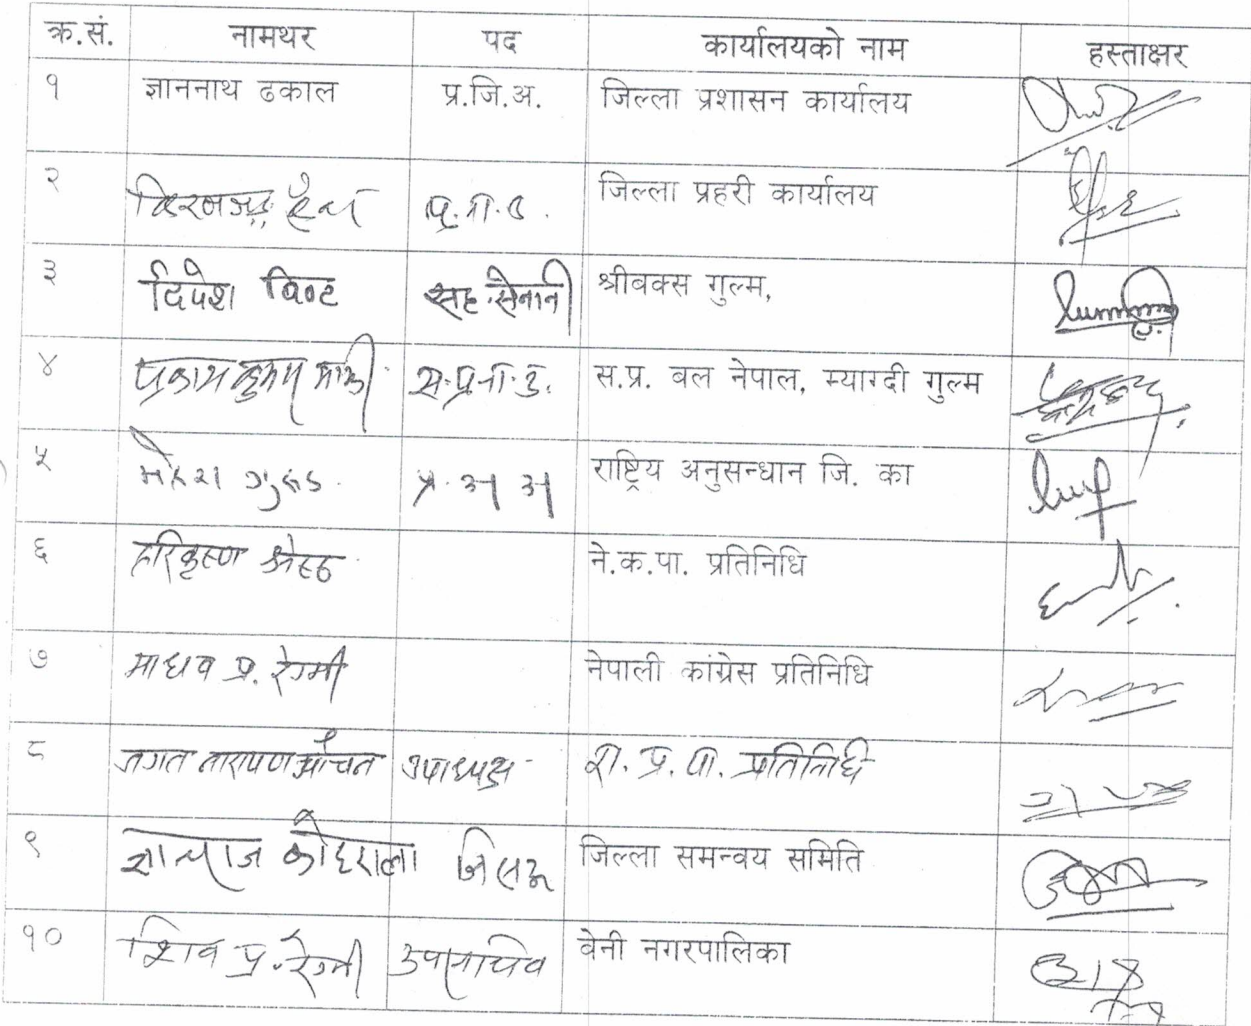 क्र.सं. नामथर पद कार्यालयको नाम हस्ताक्षर
१ ज्ञाननाथ ढकाल प्र.जि.अ. जिल्ला प्रशासन कार्यालय
२ प्र.ना.उ. जिल्ला प्रहरी कार्यालय
३ दिपेश विष्ट सह.सेनानी श्रीबक्स गुल्म,
४ प्रकाश कुमार कार्की स.प्र.ना.उ. स.प्र. बल नेपाल, म्याग्दी गुल्म
५ महेश गुरुङ प्र. अ अ राष्ट्रिय अनुसन्धान जि. का
६ हरिकृष्ण श्रेष्ठ ने.क.पा. प्रतिनिधि
७ माधव प्र. रेग्मी नेपाली कांग्रेस प्रतिनिधि
८ जगत नारायण उपाध्यक्ष रा. प्र. पा. प्रतिनिधि
९ कोइराला जिसअ जिल्ला समन्वय समिति
१० शिव प्र. रेग्मी उपसचिव बेनी नगरपालिका